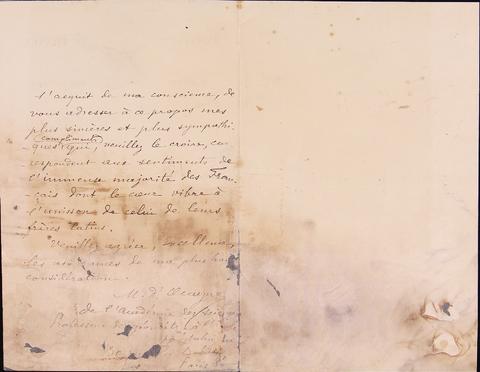 l'acquit de ma conscience, de
vous adresser à ce propos mes
plus sincères et plus sympathi-
compliments
ques qui, veuillez le croire, co
respondent aux sentiments de
l'immense majorité des Fran-
çais dont le cœur vibre à
l'unisson de celui de leurs
frères latins.
Veuillez agréer, excellence,
les assurances de ma plus haute
considération.
M. d'Ocagne
de l'Académie des Sciences
Professeur de à l'
Paris